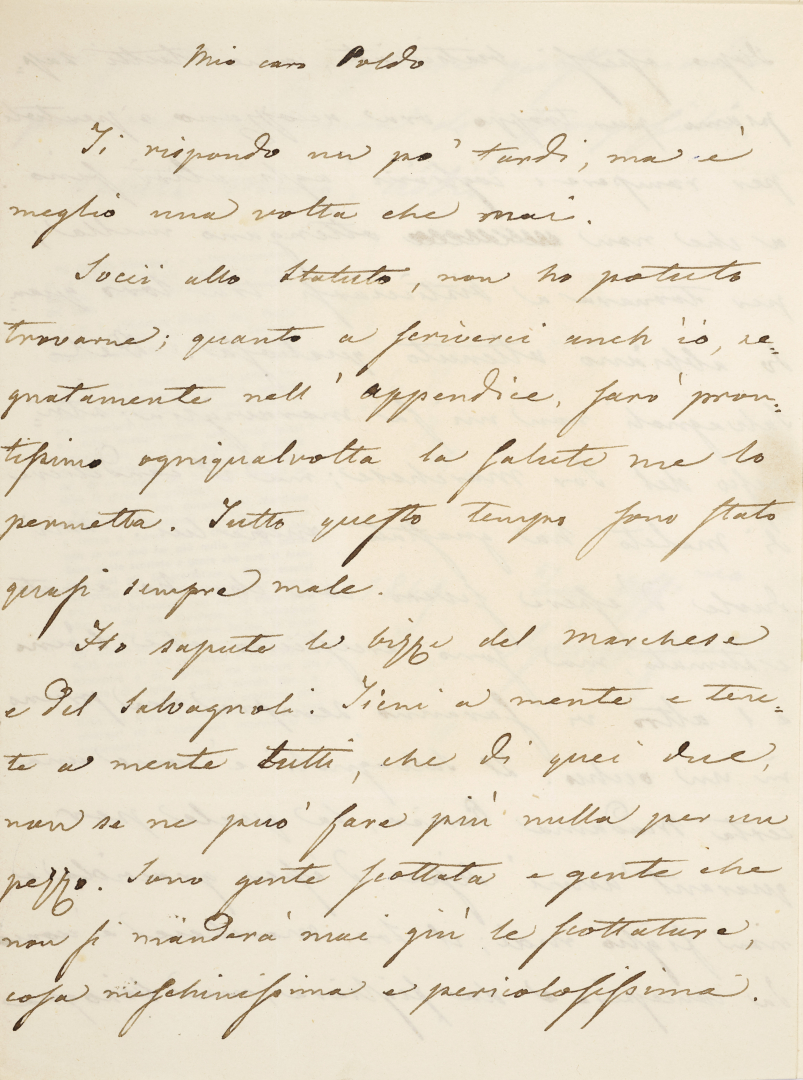 Mio caro Poldo
Ti rispondo un po' tardi, ma è
meglio una volta che mai.
Socii allo Statuto, non ho potuto
trovarne; quanto a scriverci anch'io, se=
gnatamente nell'appendice, sarò pron=
tissimo ogniqualvolta la salute me lo
permetta. Tutto questo tempo sono stato
quasi sempre male.
Ho sapute le bizze del Marchese
e del Salvagnoli. Tieni a mente e tene=
te a mente tutti, che di quei due,
non se ne può fare più nulla per un
pezzo. Sono gente scottata e gente che
non si manderà mai giù le scottature,
cosa meschinissima e pericolosissima.